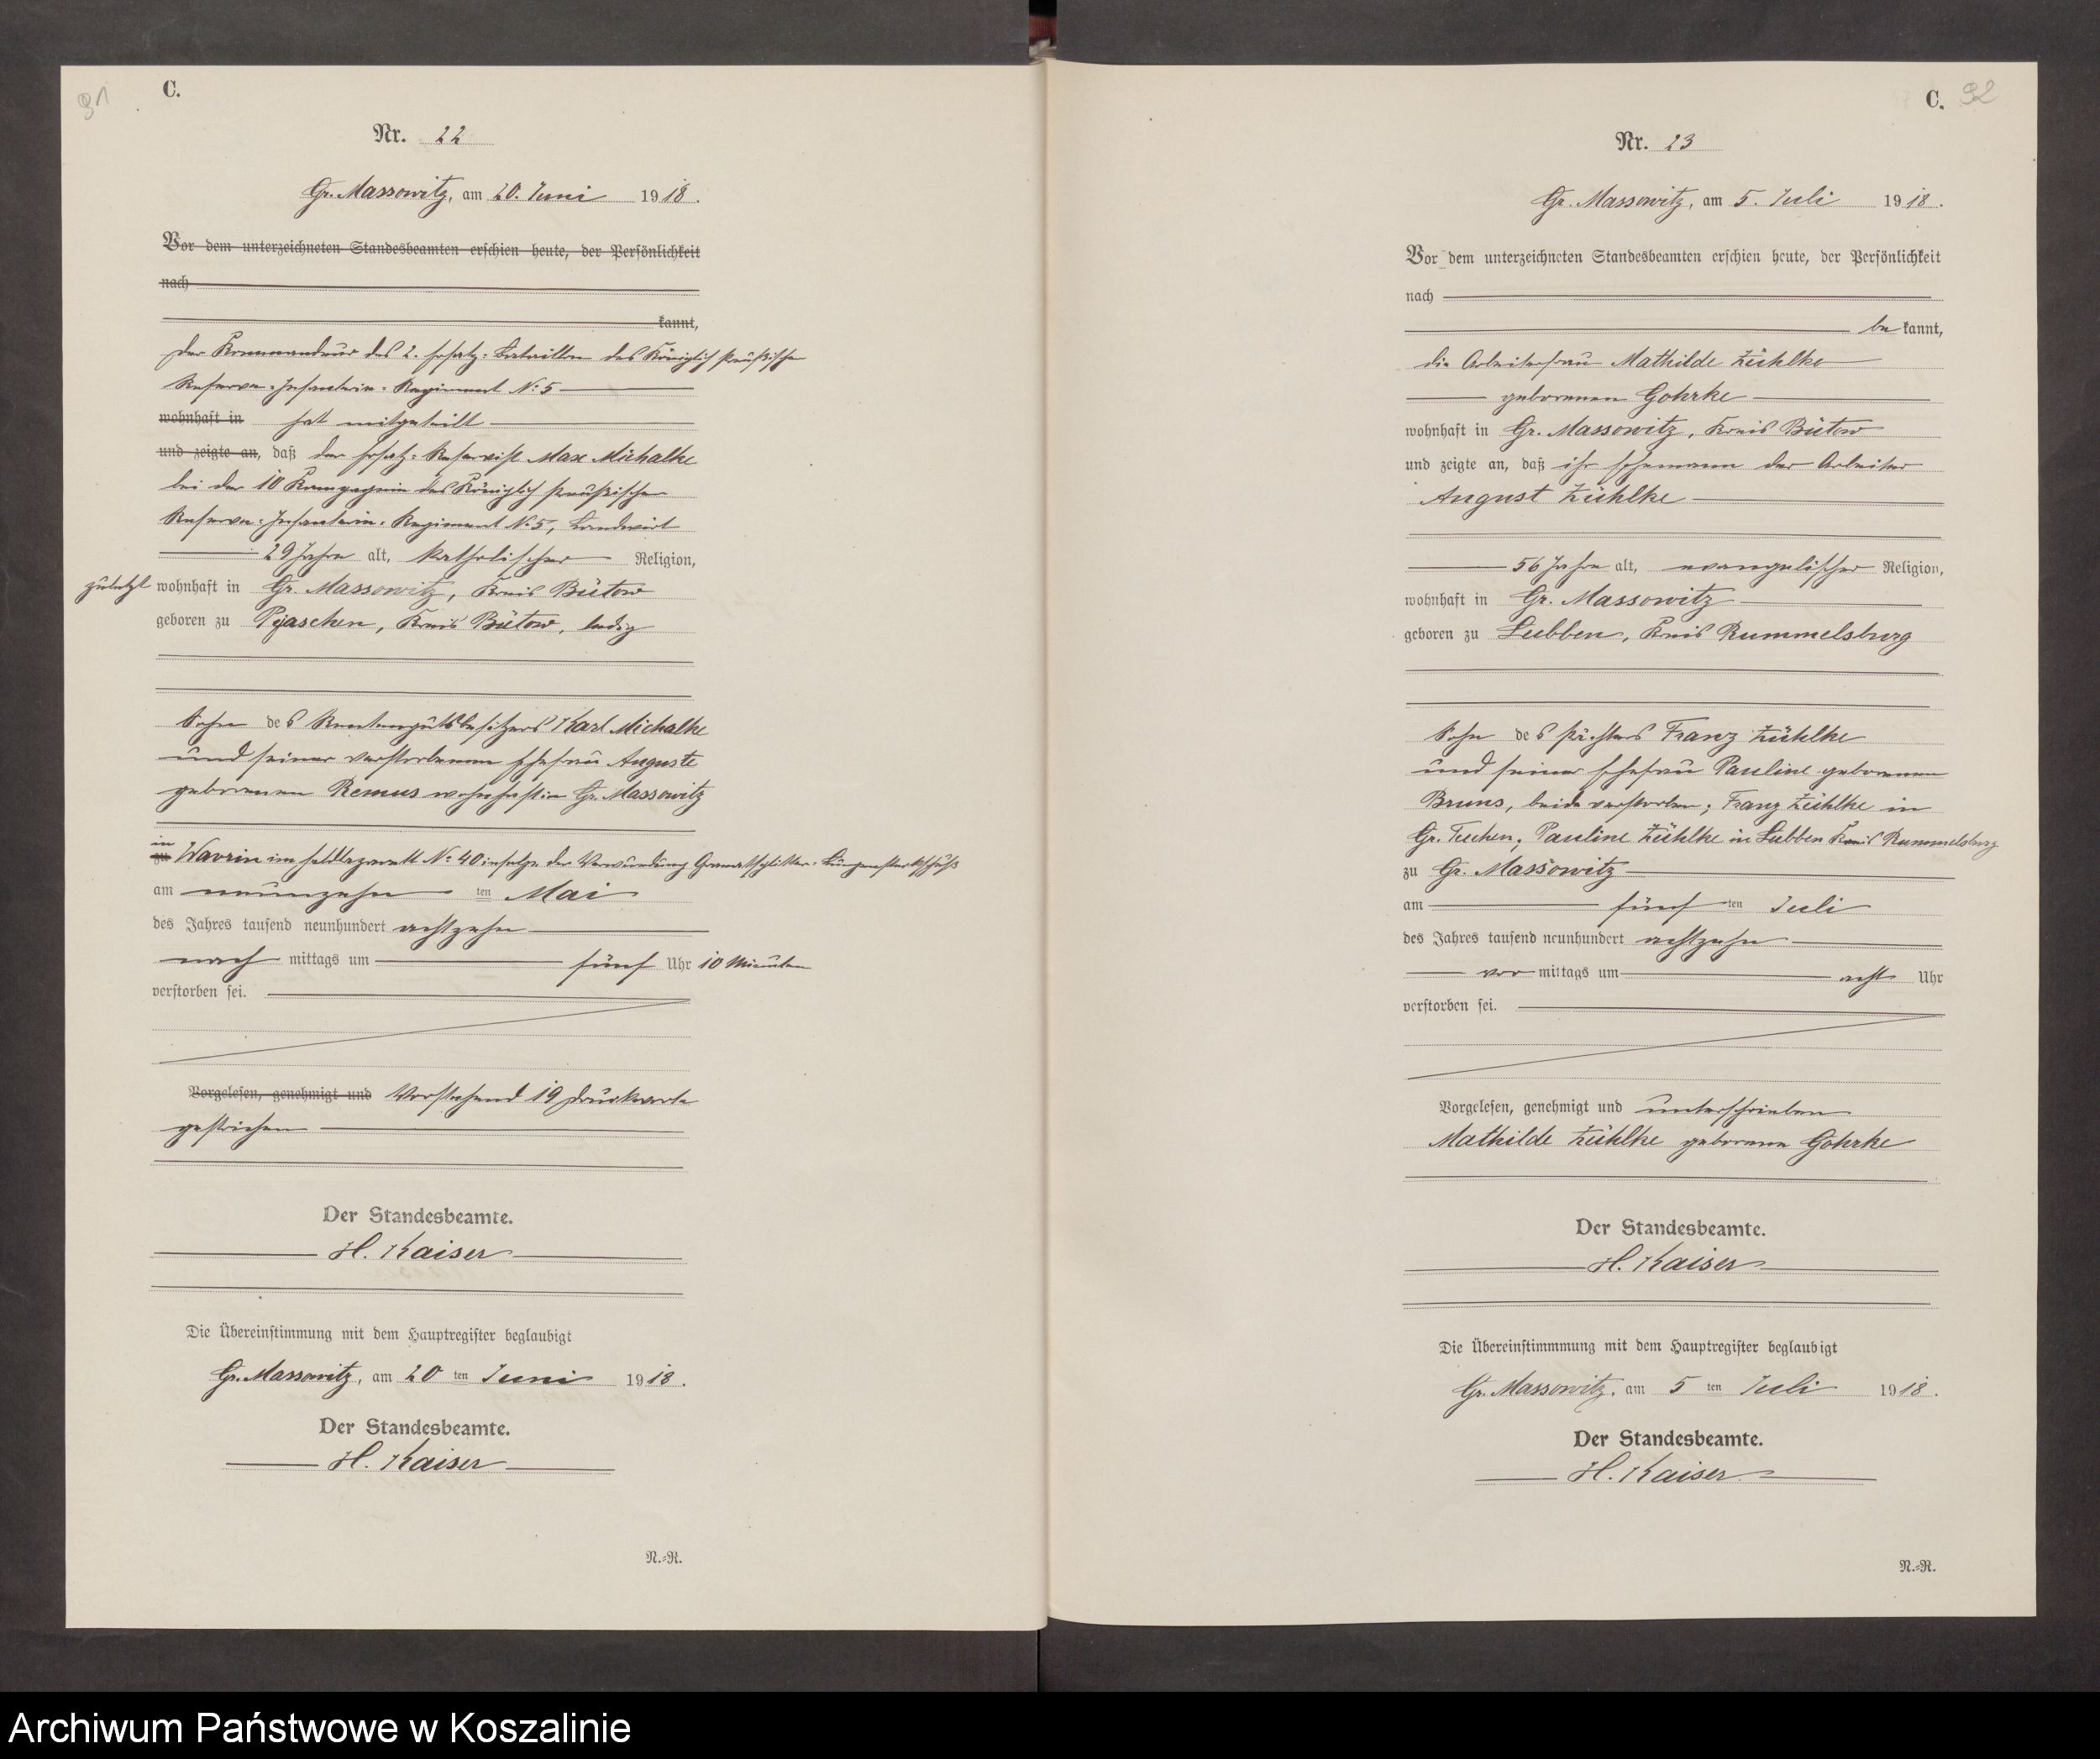 91
C.
Nr. 22
Gr. Massowitz, am 20. Juni 1918.
Vor dem unterzeichneten Standesbeamten erschien heute, der Persönlichkeit
nach
kannt,
Der Kommandeur des 2. Ersatz-Bataillon des Königlich Preußischen
Reserve-Infanterie-Regiment No 5
wohnhaft in hat mitgeteilt
und zeigte an, daß der Ersatz-Reservist Max Michalke
bei der 10 Kompagnie des Königlich Preußischen
Reserve-Infanterie-Regiment No 5, Landwirt
29 Jahre alt, katholischer Religion,
zuletzt wohnhaft in Gr. Massowitz, Kreis Bütow
geboren zu Pyaschen, Kreis Bütow, ledig
Sohn des Rentengutsbesitzers Karl Michalke
und seiner verstorbenen Ehefrau Auguste
geborenen Remus wohnhaft in Gr. Massowitz
in
zu Wavrin im Feldlazarett No 40 infolge der Verwundung Granatsplitter-
am neunzehn ten Mai
des Jahres tausend neunhundert achtzehn
nach mittags um fünf Uhr 10 Minuten
verstorben sei.
Vorgelesen, genehmigt und Vorstehend 19 Druckworte
gestrichen
Der Standesbeamte.
H. Kaiser
Die Übereinstimmung mit dem Hauptregister beglaubigt
Gr. Massowitz, am 20 ten Juni 1918.
Der Standesbeamte.
H. Kaiser
N.-R.
C. 92
Nr. 23
Gr. Massowitz, am 5. Juli 1918.
Vor dem unterzeichneten Standesbeamten erschien heute, der Persönlichkeit
nach
be kannt,
die Arbeiterfrau Mathilde Zühlke
geborenen Gohrke
wohnhaft in Gr. Massowitz, Kreis Bütow
und zeigte an, daß ihr Ehemann der Arbeiter
August Zühlke
56 Jahre alt, evangelischer Religion,
wohnhaft in Gr. Massowitz
geboren zu Lubben, Kreis Rummelsburg
Sohn des Pächters Franz Zühlke
und seiner Ehefrau Pauline geborenen
Bruns, beide verstorben; Franz Zühlke in
Gr. Tuchen, Pauline Zühlke in Lubben Kreis Rummelsburg
zu Gr. Massowitz
am fünf ten Juli
des Jahres tausend neunhundert achtzehn
vor mittags um acht Uhr
verstorben sei.
Vorgelesen, genehmigt und unterschrieben
Mathilde Zühlke geborene Gohrke
Der Standesbeamte.
H. Kaiser
Die Übereinstimmmung mit dem Hauptregister beglaubigt
Gr. Massowitz, am 5 ten Juli 1918.
Der Standesbeamte.
H. Kaiser
N.-R.
Archiwum Państwowe w Koszalinie